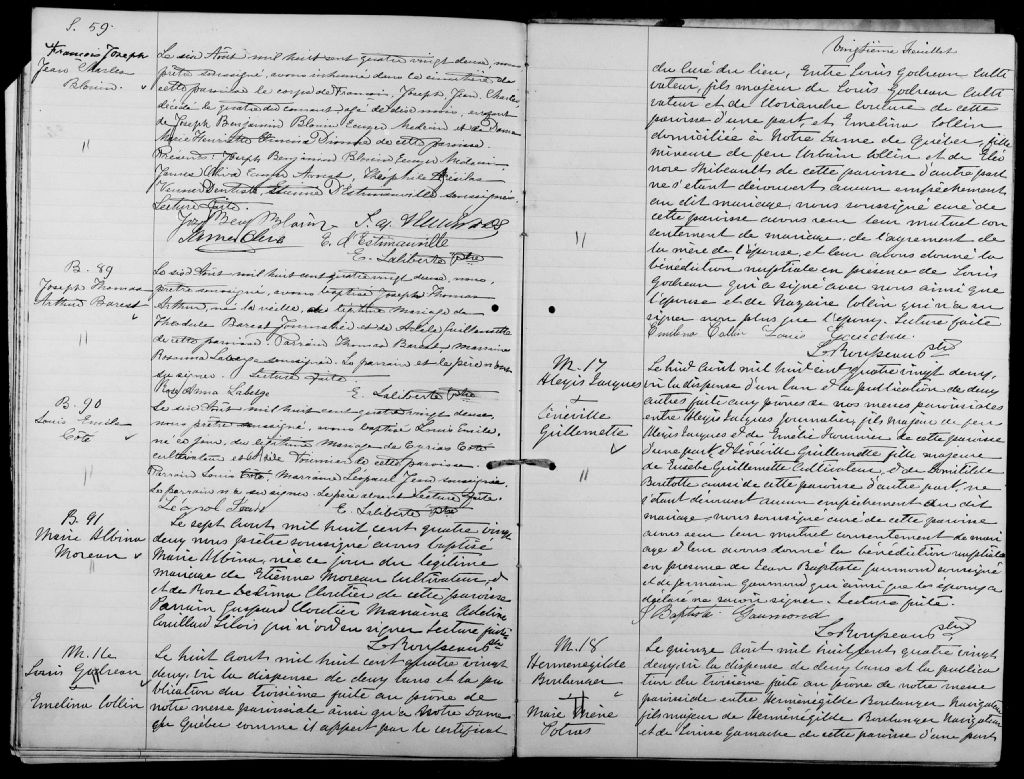 S. 59.
François Joseph
Jean Charles
Blouin.
Le six Août mil huit cent quatre vingt deux, nous
prêtre soussigné, avons inhumé dans le cimetière de
cette paroisse le corps de François, Joseph, Jean, Charles,
décédé le quatre du courant âgé de dix mois, enfant
de Joseph Benjamin Blouin Ecuyer Médecin et de Dame
Marie Henriette Dionne de cette paroisse.
Présents: Joseph Benjamin Blouin Ecuyer Médecin
James Oliva Ecuyer Avocat, Théophile
Dentiste D'Estimauville soussignés.
Lecture faite.
Jos. Benj Blouin
James Oliva E. d'Estimauville
E. Laliberté Ptre
B. 89
Joseph Thomas
Arthur Baret
Le six Août mil huit cent quatre vingt deux, nous,
prêtre soussigné, avons baptisé Joseph Thomas
Arthur, né la veille, du légitime mariage de
Thadule Baret Journalier et de Adèle Guillemette
de cette paroisse. Parrain Thomas Baret, Marraine
Rosanna Labege soussignée. Le parrain et le père n'ont
su signer. Lecture faite.
Rose Anna Labelge E. Laliberté Ptre
B. 90
Louis Emile
Coté
Le six Août mil huit cent quatre vingt deux,
nous prêtre soussigné, avons baptisé Louis Emile,
né ce jour, du légitime Mariage de Cyrias Coté
cultivateur et Adèle Fournier de cette paroisse.
Parrain Louis Coté, Marraine Léopaul Jean soussignée.
Le Parrain n'a su signer. Le père absent Lecture faite.
E. Laliberté Ptre
B. 91
Marie Albina
Moreau
Le sept Aout mil huit cent quatre vingt
deux nous prêtre soussigné avons baptisé
Marie Albina, née ce jour du légitime
mariage de Etienne Moreau Cultivateur,
et de Rose Delima Cloutier de cette paroisse
Parrain Gaspard Cloutier Marraine Adeline
qui n'ont su signer Lecture faite
L. Rousseau Ptre
M. 16
Louis Godreau
&
Emelina Collin
Le huit Aout mil huit cent quatre vingt
deux, vu la dispense de deux bans et la pu
blication du troisième faite au prône de
notre messe paroissiale ainsi qu'à Notre Dame
de Québec comme il appert par le certificat
Vingtième feuillet
du Curé du lieu, Entre Louis Godreau Culti
vateur, fils majeur de Louis Godreau Culti
vateur et de Clorianthe Couture de cette
paroisse d'une part, et Emelina Collin
domiciliée à Notre Dame de Québec, fille
mineure de feu Urbain Collin et de Eléo
nore Thibeault de cette paroisse d'autre part
ne s'étant découvert aucun empêchement
au dit mariage, nous soussigné curé de
cette paroisse avons reçu leur mutuel con
sentement de mariage, de l'agrément de
la mère de l'épouse, et leur avons donné la
bénédiction nuptiale en présence de Louis
Godreau qui a signé avec nous ainsi que
l'épouse et de Nazaire Collin qui n'a su
signer non plus que l'époux. Lecture faite
Emilina Collin Louis Gaudreau
L. Rousseau Ptre
M. 17
Alexis Jacques
+
Lénéville
Guillemette
Le huit Aout mil huit cent quatre vingt deux,
vu la dispense d'un ban et la publication de deux
autres faite aux prônes de nos messes paroissiales
entre Alexis Jacques Journalier, fils majeur de feu
Alexis Jacques & de Emélie Fournier de cette paroisse
d'une part, & Lénéville Guillemette fille majeure
de Eusèbe Guillemette Cultivateur, & de Domitilde
aussi de cette paroisse d'autre part, ne
s'étant découvert aucun empêchement au dit
mariage, nous soussigné curé de cette paroisse
avons reçu leur mutuel consentement de mari
age & leur avons donné la bénédiction nuptiale
en présence de Jean Baptiste Gaumond soussigné
et de Germain Gaumond qui ainsi que les époux a
déclaré ne savoir signer. Lecture faite.
J Baptiste Gaumond
L. Rousseau Ptre
M. 18
Hermenégilde
Boulanger
Marie
Poliras
Le quinze Août mil huit cent quatre vingt
deux, vu la dispense de deux bans et la publica
tion du troisième faite au prône de notre messe
paroissiale entre Herménégilde Boulanger Navigateur
fils majeur de Herménégilde Boulanger Navigateur
et de Louise Gamache de cette paroisse d'une part